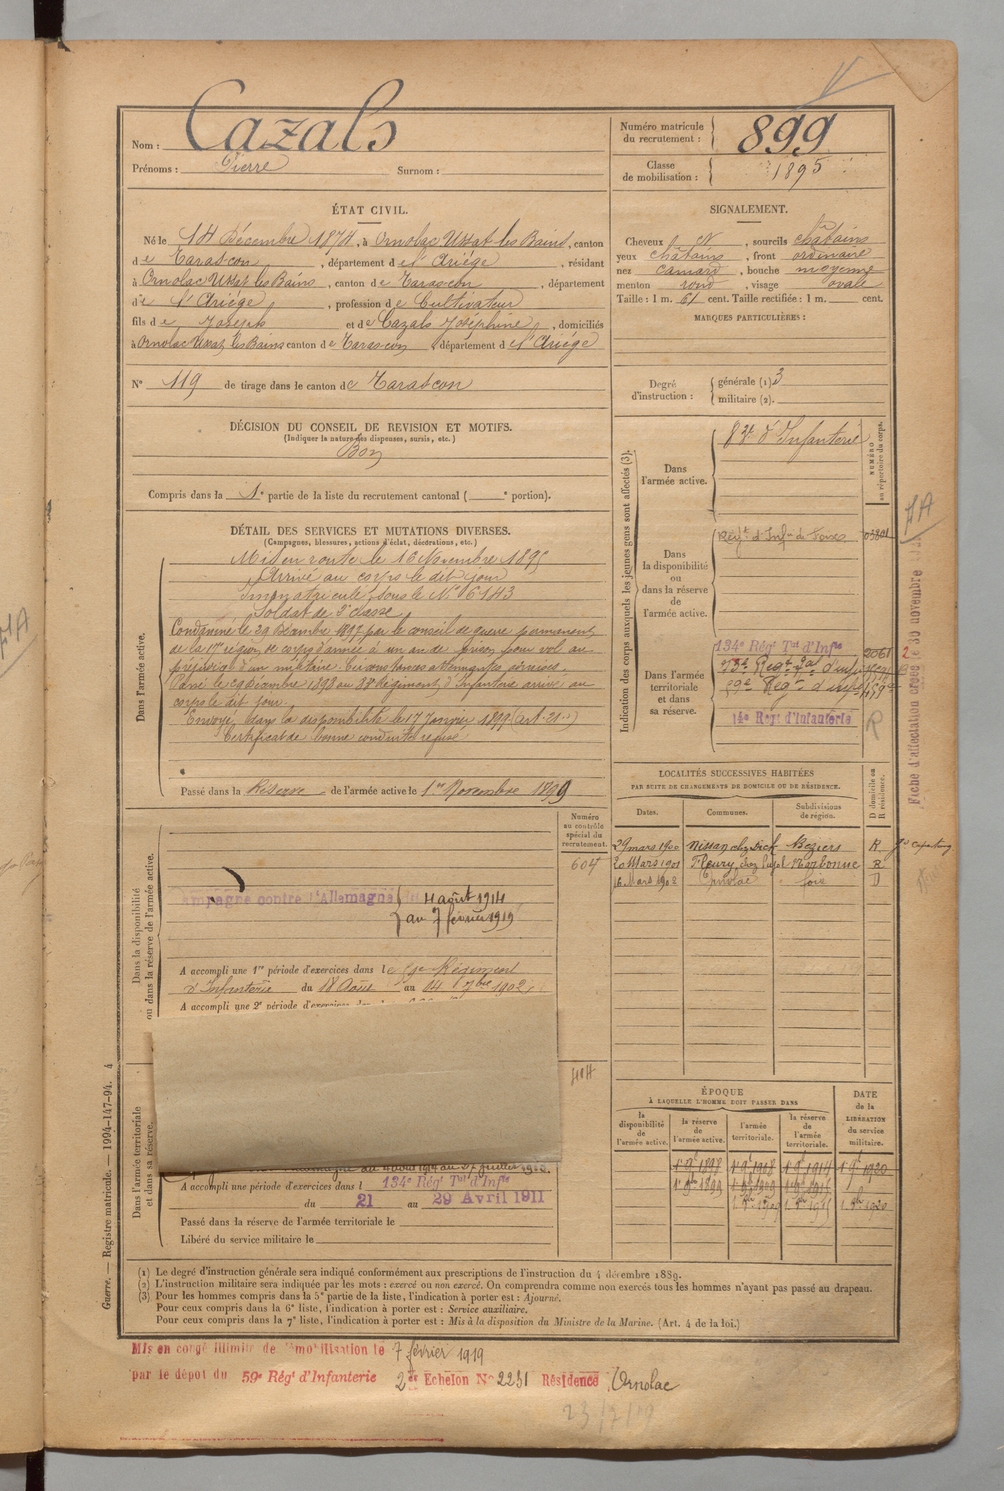 Nom : Cazals
Prénoms : Pierre Surnom :
Numéro matricule du recrutement : 899
Classe de mobilisation : 1895
ÉTAT CIVIL.
Né le 14 Décembre 1874, à Ornolac Ussat les Bains, canton
de Tarascon, département de l'Ariége, résidant
à Ornolac Ussat les Bains, canton de Tarascon, département
de l'Ariége, profession de Cultivateur
fils de Joseph et de Cazals Joséphine, domiciliés
à Ornolac Ussat les Bains canton de Tarascon département de l'Ariége
N° 119 de tirage dans le canton de Tarascon
SIGNALEMENT.
Cheveux N, sourcils châtains
yeux châtains, front ordinaire
nez camard, bouche moyenne
menton rond, visage ovale
Taille : 1 m. 61 cent. Taille rectifiée : 1 m. cent.
MARQUES PARTICULIÈRES :
Degré d'instruction : générale (1) 3
militaire (2).
DÉCISION DU CONSEIL DE REVISION ET MOTIFS.
(Indiquer la nature des dispenses, sursis, etc.)
Bon
Compris dans la 1e partie de la liste du recrutement cantonal ( e portion).
DÉTAIL DES SERVICES ET MUTATIONS DIVERSES.
(Campagnes, blessures, actions d'éclat, décorations, etc.)
Dans l'armée active.
Mis en route le 16 Novembre 1895
Arrivé au corps le dit jour
Immatriculé sous le N° 6143
Soldat de 2e classe
Condamné le 29 Décembre 1897 par le conseil de guerre permanent
de la 17e région de corps d'armée à un an de prison pour vol au
préjudice d'un militaire. Circonstances atténuantes
Passé le 29 Décembre 1898 au Régiment d'Infanterie arrivé au
corps le dit jour.
Envoyé dans la disponibilité le 17 Janvier 1899 (art. 21)
Certificat de bonne conduite refusé
Passé dans la Réserve de l'armée active le 1er Novembre 1899
Indication des corps auxquels les jeunes gens sont affectés (3).
NUMÉRO au répertoire du corps.
Dans l'armée active.
83e d'Infanterie
Dans la disponibilité ou dans la réserve de l'armée active.
Régt d'Infie de Foix 03801
Dans l'armée territoriale et dans sa réserve.
134e Régt Tal d'Infie 2061
59e Régt d'inf
14e Régt d'Infanterie
R
Fiche d'affectation créée le 30 novembre
LOCALITÉS SUCCESSIVES HABITÉES
PAR SUITE DE CHANGEMENTS DE DOMICILE OU DE RÉSIDENCE.
Dates. Communes. Subdivisions de région. D domicile ou R résidence.
29 mars 1900 Nissan Béziers R
20 Mars 1901 Fleury Narbonne R
16 Mars 1902 Ornolac Foix D
Dans la disponibilité ou dans la réserve de l'armée active.
Numéro au contrôle spécial du recrutement.
607
Campagne contre l'Allemagne du 4 août 1914
au 7 février 1919
A accompli une 1re période d'exercices dans le 59e Régiment
d'Infanterie du 18 Août au 14 7bre 1902
A accompli une 2e période d'exercices
Dans l'armée territoriale et dans sa réserve.
A accompli une période d'exercices dans l 134e Régt Tal d'Infie
du 21 au 29 Avril 1911
Passé dans la réserve de l'armée territoriale le
Libéré du service militaire le
ÉPOQUE
À LAQUELLE L'HOMME DOIT PASSER DANS
DATE de la LIBÉRATION du service militaire.
la disponibilité de l'armée active. la réserve de l'armée active. l'armée territoriale. la réserve de l'armée territoriale.
1er 9bre 1898 1er 9bre 1908 1er 9bre 1914 1er 9bre 1920
1er 9bre 1899 1er 9bre 1909
Guerre. — Registre matricule. — 1994-147-94. 4
(1) Le degré d'instruction générale sera indiqué conformément aux prescriptions de l'instruction du 4 décembre 1889.
(2) L'instruction militaire sera indiquée par les mots : exercé ou non exercé. On comprendra comme non exercés tous les hommes n'ayant pas passé au drapeau.
(3) Pour les hommes compris dans la 5e partie de la liste, l'indication à porter est : Ajourné.
Pour ceux compris dans la 6e liste, l'indication à porter est : Service auxiliaire.
Pour ceux compris dans la 7e liste, l'indication à porter est : Mis à la disposition du Ministre de la Marine. (Art. 4 de la loi.)
Mis en congé illimité de démobilisation le 7 février 1919
par le dépot du 59e Régt d'Infanterie 2er Echelon N° 2251 Résidence Ornolac